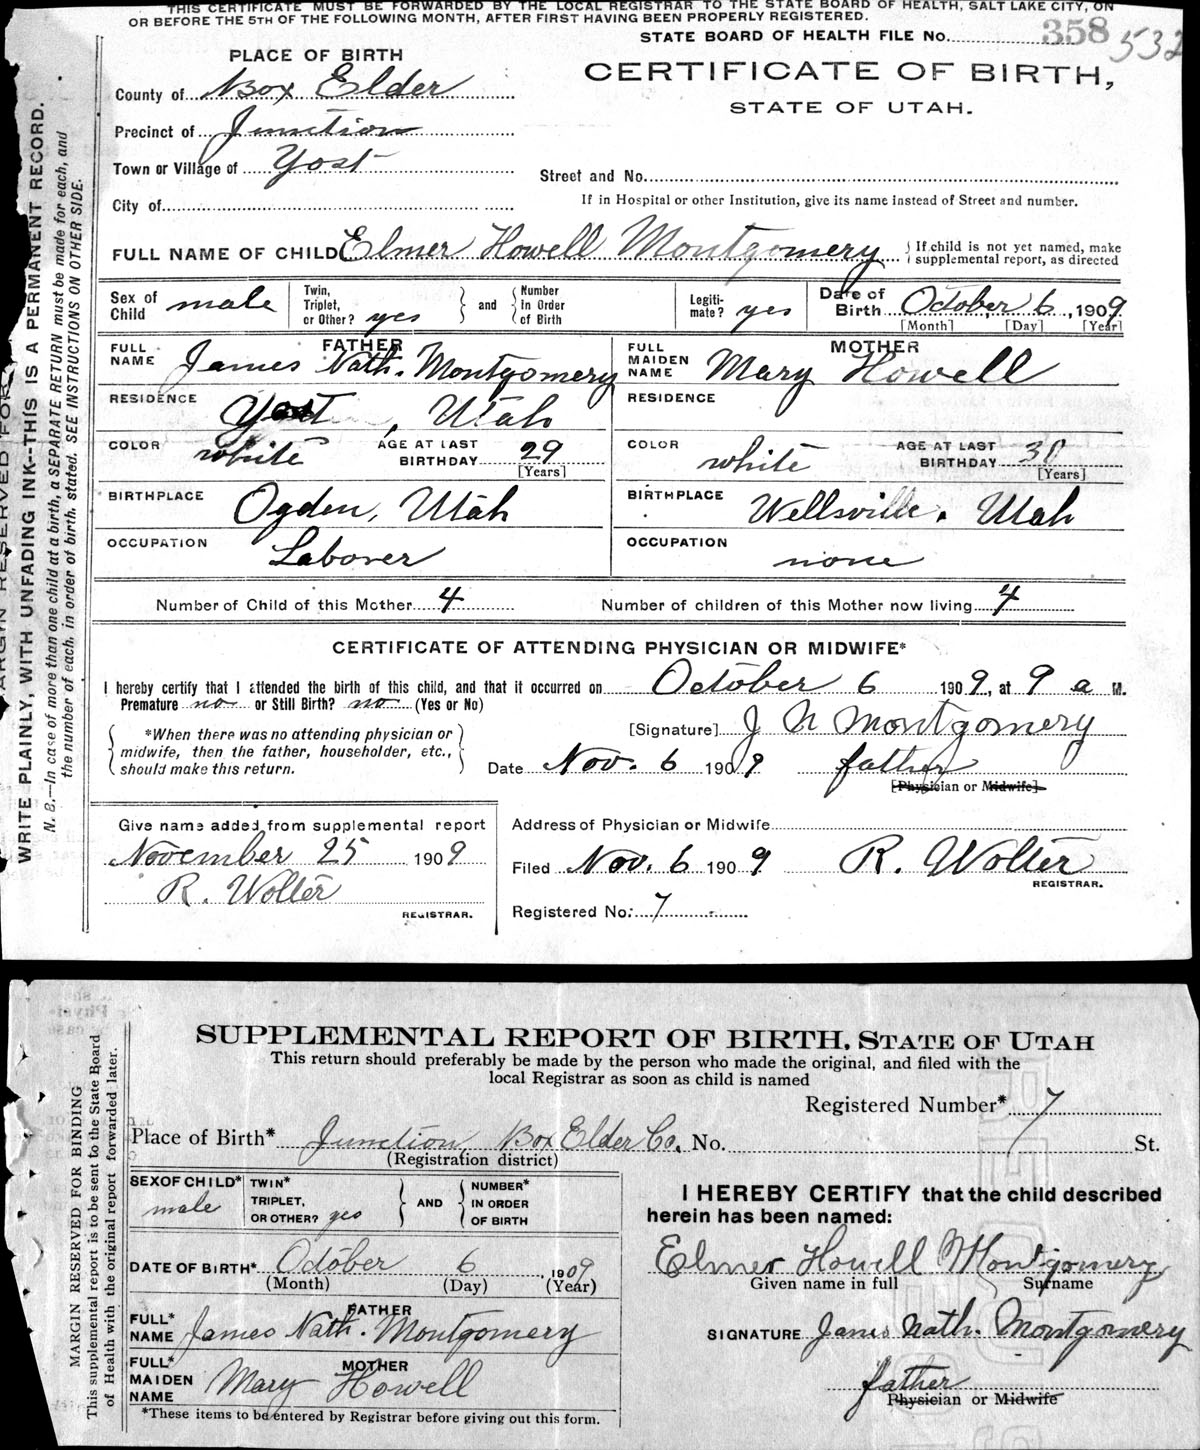 THIS CERTIFICATE MUST BE FORWARDED BY THE LOCAL REGISTRAR TO THE STATE BOARD OF HEALTH, SALT LAKE CITY, ON
OR BEFORE THE 5TH OF THE FOLLOWING MONTH, AFTER FIRST HAVING BEEN PROPERLY REGISTERED.
STATE BOARD OF HEALTH FILE No. 358 532
PLACE OF BIRTH
CERTIFICATE OF BIRTH,
STATE OF UTAH.
County of Box Elder
Precinct of Junction
Town or Village of Yost
Street and No.
City of
If in Hospital or other Institution, give its name instead of Street and number.
FULL NAME OF CHILD Elmer Howell Montgomery
If child is not yet named, make
supplemental report, as directed
Sex of
Child male
Twin,
Triplet,
or Other? yes
and
Number
in Order
of Birth
Legiti-
mate? yes
Date of
Birth October 6, 1909
[Month] [Day] [Year]
FATHER
FULL
NAME James Nath. Montgomery
MOTHER
FULL
MAIDEN
NAME Mary Howell
RESIDENCE Yost, Utah
RESIDENCE
COLOR white
AGE AT LAST
BIRTHDAY 29
[Years]
COLOR white
AGE AT LAST
BIRTHDAY
[Years]
BIRTHPLACE Ogden, Utah
BIRTHPLACE Wellsville, Utah
OCCUPATION Laborer
OCCUPATION none
Number of Child of this Mother 4
Number of children of this Mother now living 4
CERTIFICATE OF ATTENDING PHYSICIAN OR MIDWIFE*
I hereby certify that I attended the birth of this child, and that it occurred on October 6 1909, at 9 a M.
Premature no or Still Birth? no (Yes or No)
*When there was no attending physician or
midwife, then the father, householder, etc.,
should make this return.
[Signature] J N Montgomery
Date Nov. 6 1909 father
[Physician or Midwife]
Give name added from supplemental report
November 25 1909
R. Wolter
REGISTRAR.
Address of Physician or Midwife
Filed Nov. 6 1909 R. Wolter
REGISTRAR.
Registered No. 7
WRITE PLAINLY, WITH UNFADING INK--THIS IS A PERMANENT RECORD.
N. B.—In case of more than one child at a birth, a SEPARATE RETURN must be made for each, and
the number of each, in order of birth, stated. SEE INSTRUCTIONS ON OTHER SIDE.
SUPPLEMENTAL REPORT OF BIRTH, STATE OF UTAH
This return should preferably be made by the person who made the original, and filed with the
local Registrar as soon as child is named
Registered Number* 7
Place of Birth* Junction, Box Elder Co. No. St.
(Registration district)
SEX OF CHILD*
male
TWIN*
TRIPLET,
OR OTHER? yes
AND
NUMBER*
IN ORDER
OF BIRTH
DATE OF BIRTH* October 6, 1909
(Month) (Day) (Year)
FATHER
FULL*
NAME James Nath. Montgomery
MOTHER
FULL*
MAIDEN
NAME Mary Howell
*These items to be entered by Registrar before giving out this form.
I HEREBY CERTIFY that the child described
herein has been named:
Elmer Howell Montgomery
Given name in full Surname
SIGNATURE James Nath. Montgomery
father
Physician or Midwife
MARGIN RESERVED FOR BINDING
This supplemental report is to be sent to the State Board
of Health with the original report forwarded later.